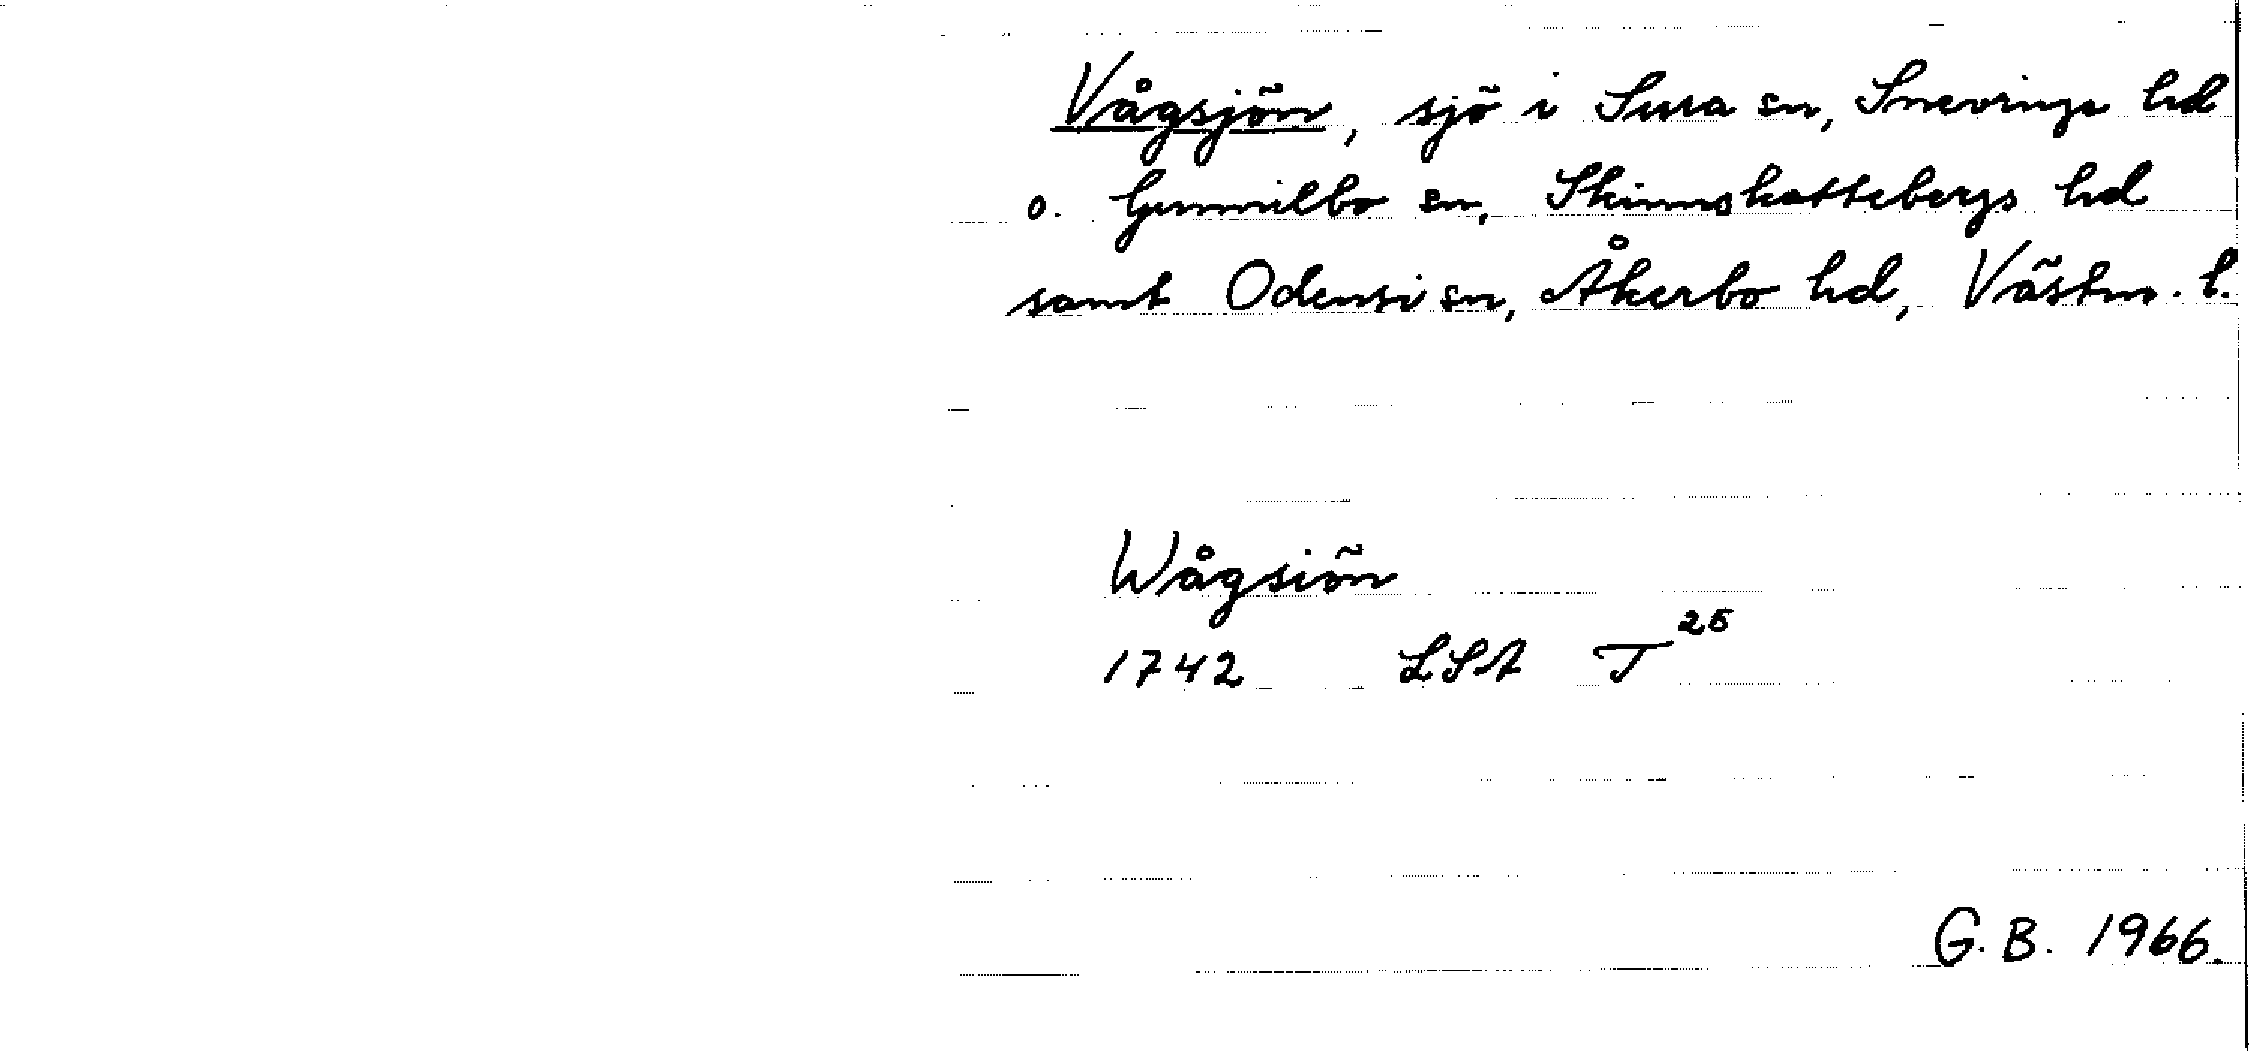 Vågsjön, sjö i Sura sn, Snevringe hd
o. Gunnilbo sn, Skinnskattebergs hd
samt Odensvi sn, Åkerbo hd, Västm. l.
Wågsiön
1742 LSA T 26
G. B. 1966.